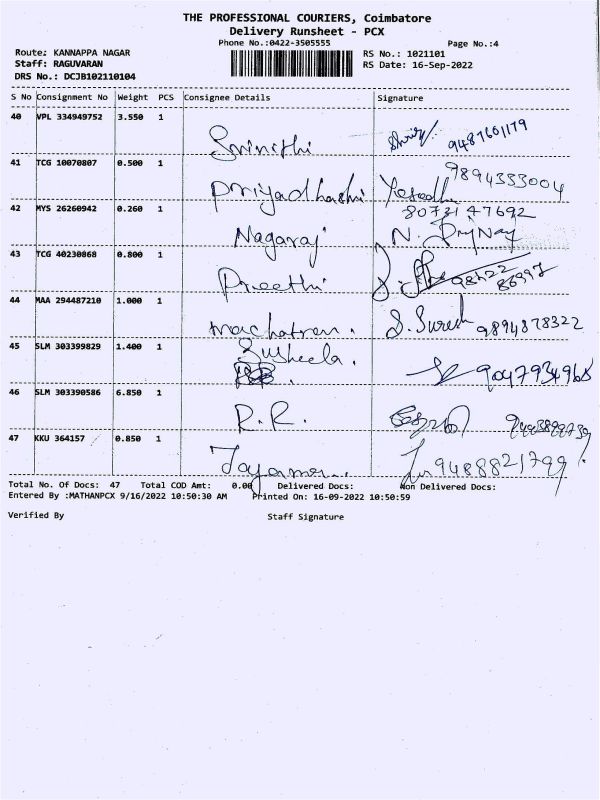 THE PROFESSIONAL COURIERS, Coimbatore
Delivery Runsheet - PCX
Phone No.:0422-3505555
Page No.:4
Route: KANNAPPA NAGAR
RS No.: 1021101
Staff: RAGUVARAN
RS Date: 16-Sep-2022
DRS No.: DCJB102110104
S No Consignment No Weight PCS Consignee Details Signature
40 VPL 334949752 3.550 1
Srinithi 9487601179
41 TCG 10070807 0.500 1
Priyadharshi Yasodha 9894333004
42 MYS 26260942 0.260 1
8073147692
Nagaraj N.
43 TCG 40230868 0.800 1
Preethi
44 MAA 294487210 1.000 1
S. Suresh 9894878322
45 SLM 303399829 1.400 1
Susheela. 9047934968
46 SLM 303390586 6.850 1
P.R.
47 KKU 364157 0.850 1
9488821799
Total No. Of Docs: 47 Total COD Amt: 0.00 Delivered Docs: Non Delivered Docs:
Entered By :MATHANPCX 9/16/2022 10:50:30 AM Printed On: 16-09-2022 10:50:59
Verified By Staff Signature